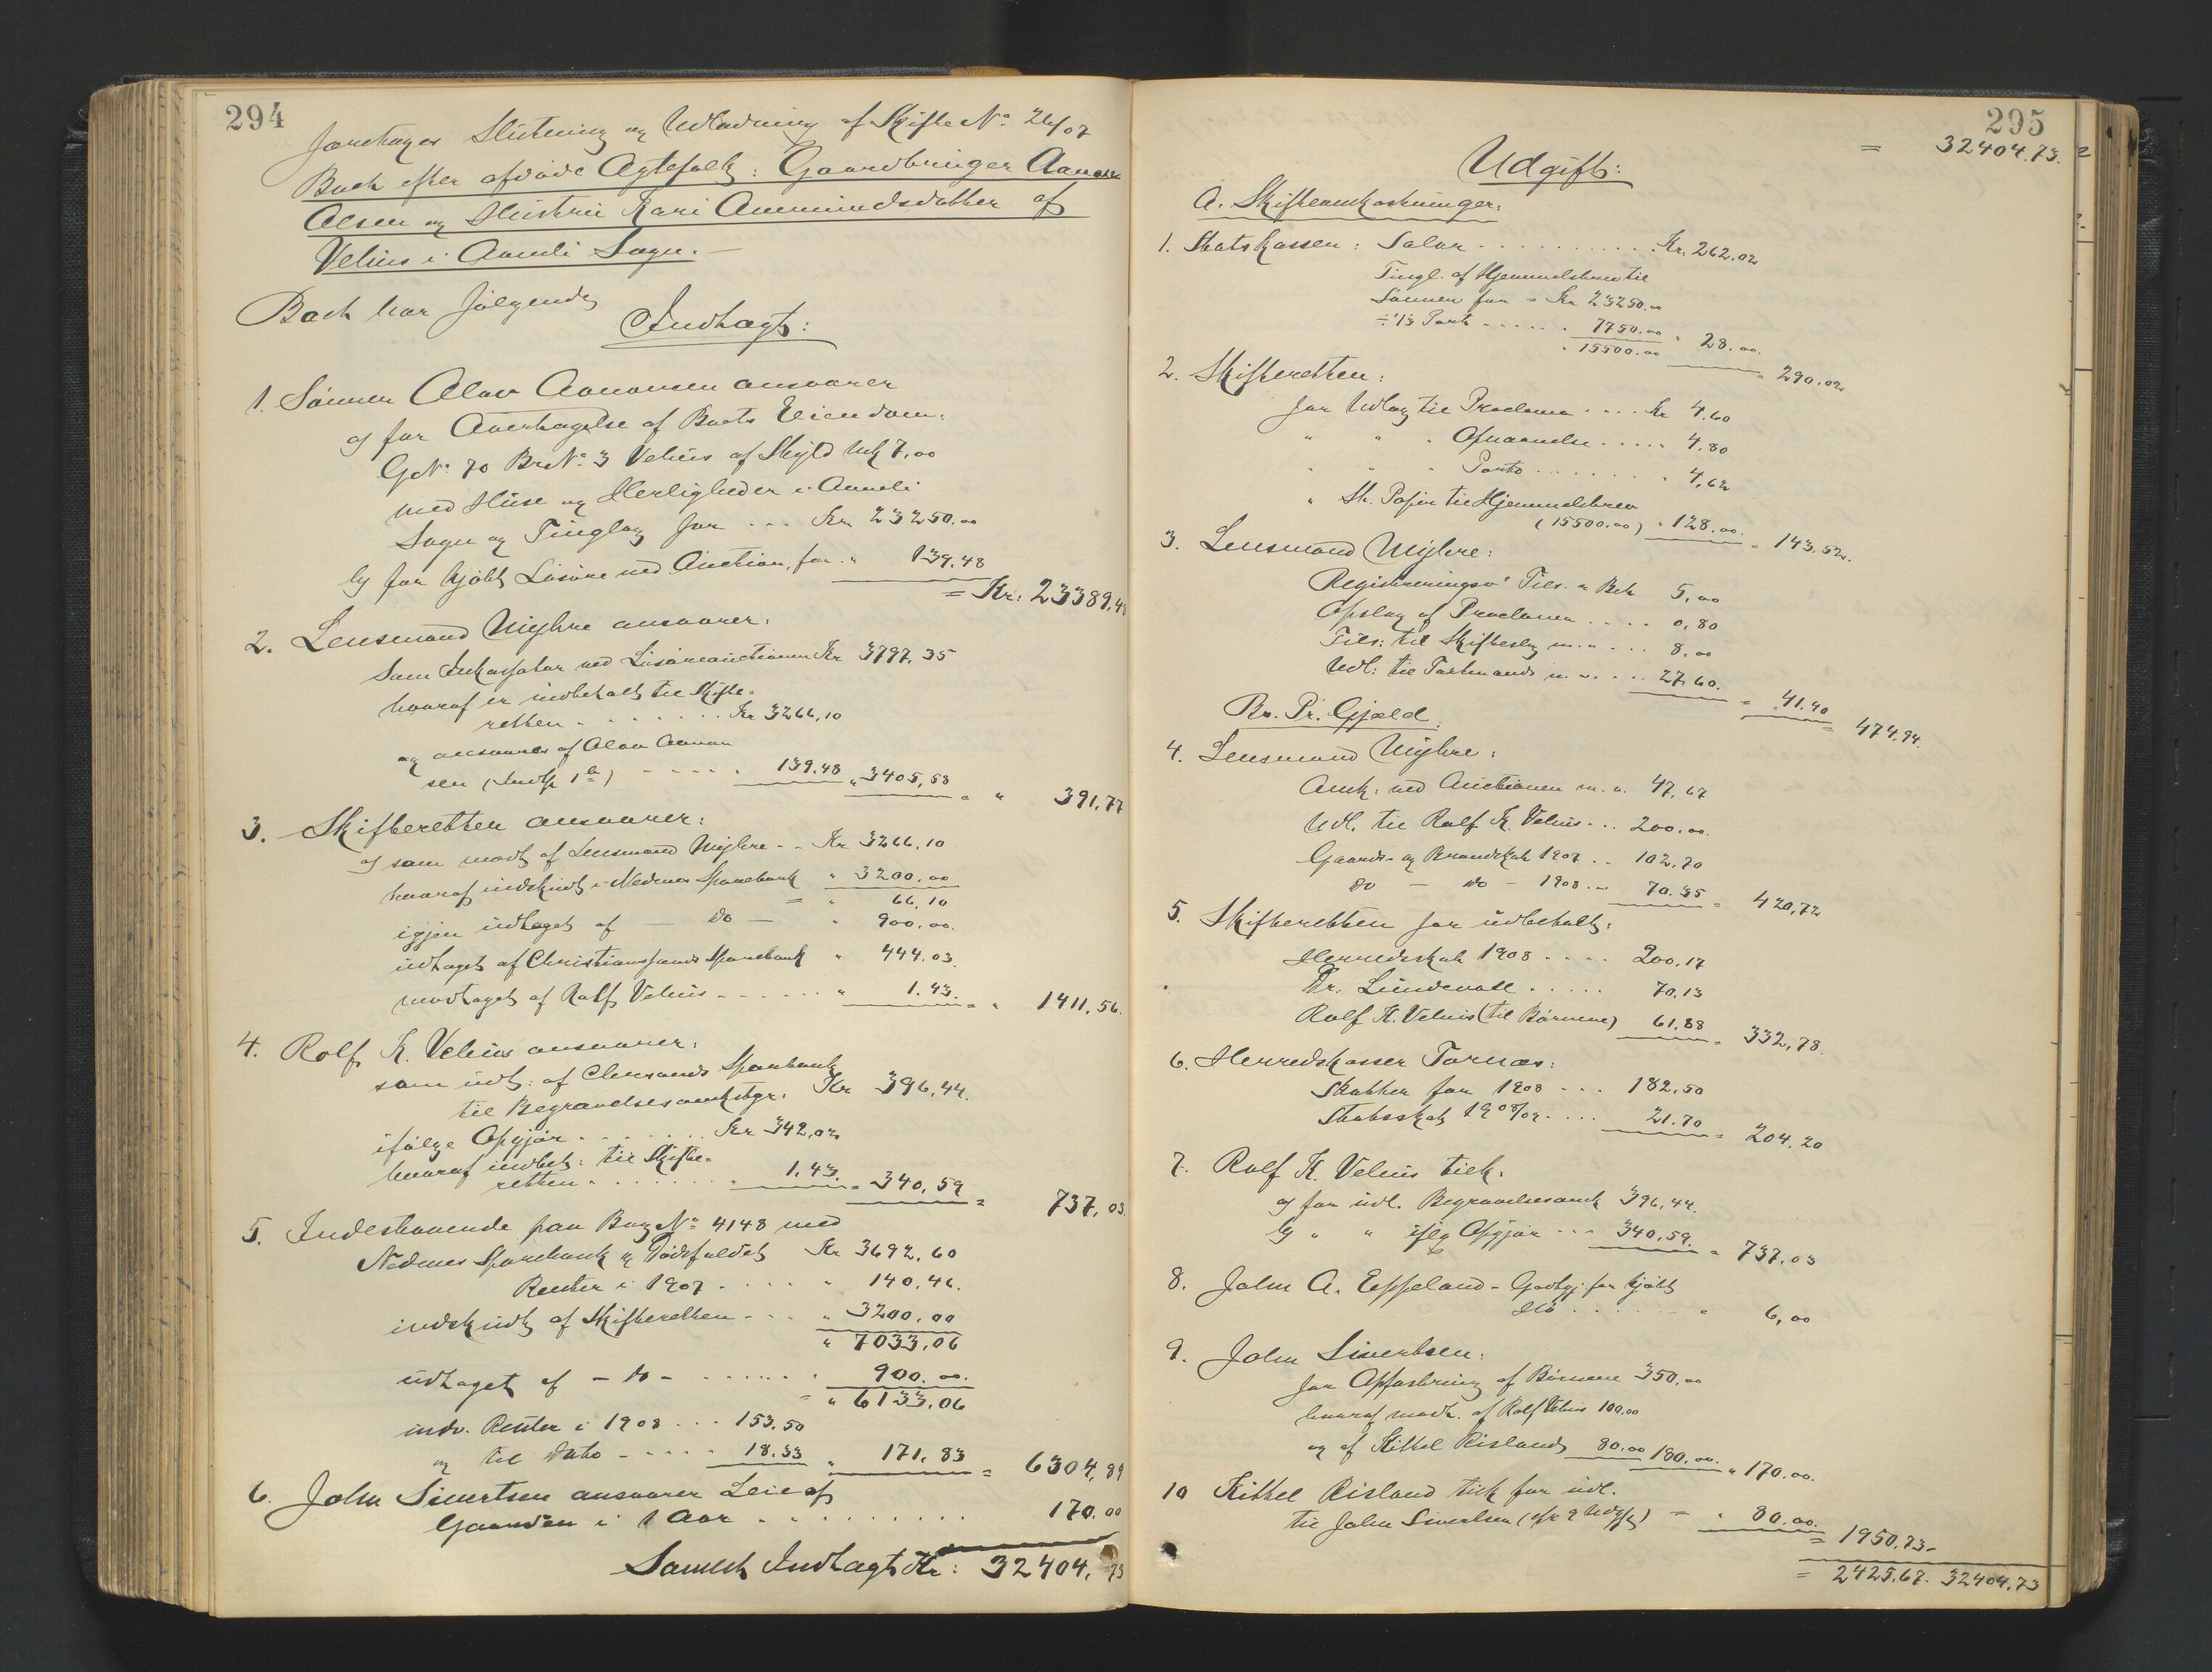 294
Foretages Slutning og Udlodning af Skifte No 24/07
Boet efter afdøde Ægtefolk: Gaardbruger Aanon
Olsen og Hustru Kari Aanundsdatter af
Vehus i Aamli Sogn. —
Boet har følgende
Indtægt:
1. Sønnen Olav Aanonsen ansvarer
a) for Overtagelse af Boets Eiendom:
GNo 70 BrNo 3 Vehus af Skyld Mk 7,00
med Huse og Herligheder i Aamli
Sogn og Tinglag for ... Kr 23250.00
b) for kjøbt Løsøre ved Auction, for " 139.48
= Kr: 23389,48
2. Lensmand Myhre ansvarer:
Som Inkassator ved Løsøreauctionen Kr 3797.35
hvoraf er indbetalt til Skifte-
retten . . . . . . . Kr 3266,10
og ansvares af Olav Aanon
sen (Indtg 1 b) - - - - 139.48 " 3405,58 = " 391.77
3. Skifteretten ansvarer:
a) som modt. af Lensmand Myhre - - Kr 3266.10
hvoraf indskudt i Nedenes Sparebank " 3200.00
= " 66.10
igjen udtaget af — do — " 900.00.
udtaget af Christianssands Sparebank " 444.03.
modtaget af Rolf Vehus - - - - - - " 1.43. = " 1411,56.
4. Rolf K. Vehus ansvarer:
som udt: af Chrsands Sparebank
til Begravelsesomkstgr. Kr 396,44.
ifølge Opgjør . . . . . . . Kr 342,02
hvoraf indbet: til Skifte-
retten . . . . . . . " 1.43. = 340,59 = 737,03.
5. Indestaaende paa Bog No 4148 med
Nedenes Sparebank v/ Dødsfaldet Kr 3692,60
Renter i 1907 - . . . . " 140.46.
indskudt af Skifteretten - . . " 3200.00
" 7033,06
udtaget af - do - - . . . . . 900.00.
= " 6133.06
indv. Renter i 1908 - . . 153.50
og til Dato - - - - . 18.33 " 171.83 = 6304,89
6. John Sivertsen ansvarer Leie af
Gaarden i 1 Aar . . . . . . . . . 170.00
Samlet Indtægt Kr: 32404,73
295
= 32404.73.
Udgift:
A. Skifteomkostninger:
1. Statskassen: Salær . . . . . . . . . . . Kr. 262.02
Tingl. af Hjemmelsbrev til
Sønnen for = Kr 23250.00
÷ 1/3 Part - . . . . . 7750.00 " 28.00.
" 15500.00 = 290.02
2. Skifteretten:
for Udlæg til Proclama . . . . Kr 4.60
" " " Opnævnelse . . . . . 4.80
" " " Porto . . . . . . . . " 4,62
" St. Papir til Hjemmelsbrev
(15500.00) " 128.00. = 143.52.
3. Lensmand Myhre:
Registrerings Tils. a Bek 5.00
Opslag af Proclama . . . . 0,80
Tils: til Skiftesl. m. v. . . . 8,00
Udl: til Takstmænd m. v. . . . 27.60. = 41.40 = 474.94.
B. Pr. Gjæld.
4. Lensmand Myhre:
Omk: ved Auctionen m. v. 47,67
Udl. til Rolf K. Vehus . . . 200.00.
Gaards- og Brandskat 1907 . . 102.70
do — do — 1908 . . . 70.35 = 420,72
5. Skifteretten for udbetalt:
Herredsskat 1908 . . . . 200.17
Dr. Lundevall . . . . . 70,13
Rolf K. Vehus (til Børnene) 61.88 = 332,78.
6. Herredskasser Tornæs:
Skatter for 1908 - . . . 182.50
Statsskat 1908/09 . . . . 21.70 = 204.20
7. Rolf K. Vehus tilk.
a) for udl. Begravelsesomk 396,44.
b) " " iflg Opgjør . . . 340,59. = 737,03
8. John A. Eppeland - Godtgj. for kjøbt
Hø . . . . . . . " 6,00
9. John Sivertsen:
for Opfostring af Børnene 350.00
hvoraf modt. af Rolf Vehus 100.00
og af Kittel Risland 80.00 180.00. " 170.00.
10 Kittel Risland tilk for udl.
til John Sivertsen (cfr 9 Udgft) = " 80.00. = 1950.73 -
= 2425.67. 32404.73